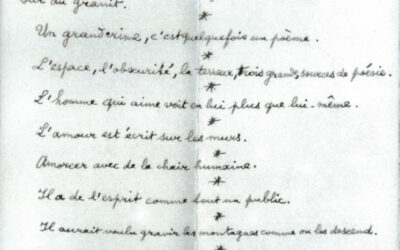 sur du granit.
*
Un grand crime, c'est quelquefois un poème.
*
L'espace, l'obscurité, la terreur, trois grands sources de poésie.
*
L'homme qui aime voit en lui plus que lui-même.
*
L'amour est écrit sur les murs.
*
Amorcer avec de la chair humaine.
*
Il a de l'esprit comme tout un public.
*
Il aurait voulu gravir les montagnes comme on les descend.
*